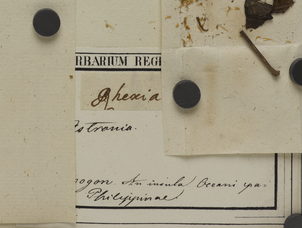 RBARIUM REG
Rhexia
Astronia.
pogon. In insula Oceani pa
Philippinae